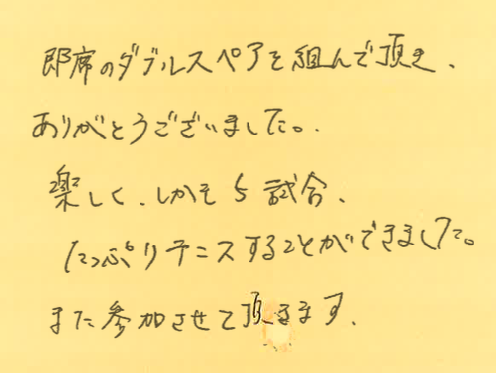 即席のダブルスペアを組んで頂き、
ありがとうございました。
楽しく、しかも5試合、
たっぷりテニスすることができました。
また参加させて頂きます。